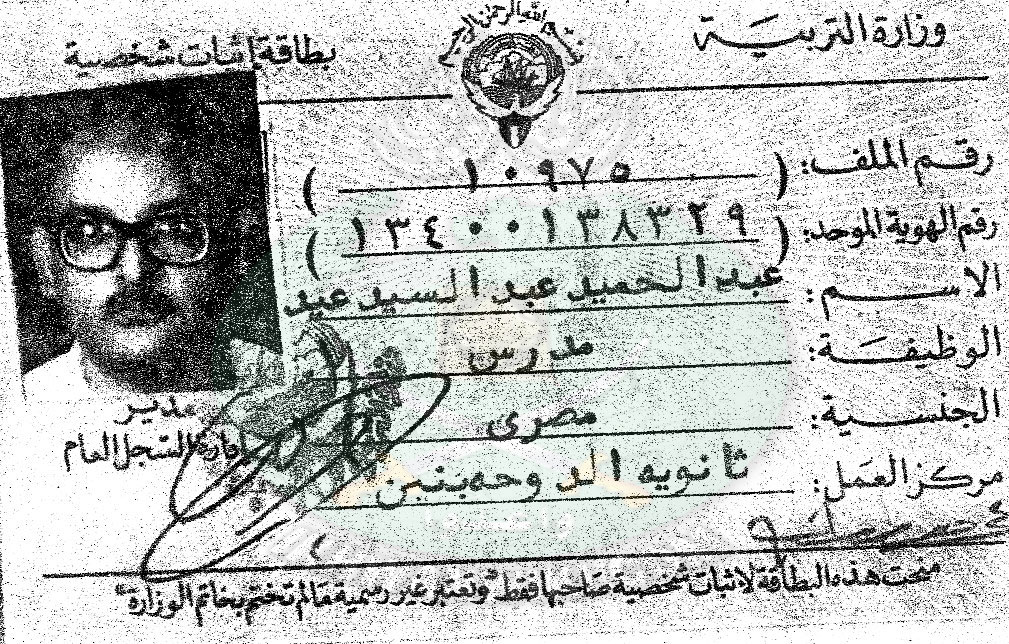 بسم الله الرحمن الرحيم
وزارة التربية
بطاقة إثبات شخصية
رقم الملف: ( ١٠٩٧٥ )
رقم الهوية الموحد: ( ١٣٤٠٠١٣٨٣٢٩ )
الاسم: عبد الحميد عبد السيد عيد
الوظيفة: مدرس
الجنسية: مصرى
مركز العمل: ثانويه الدوحه بنين
مدير
إدارة السجل العام
منحت هذه البطاقة لاثبات شخصية صاحبها فقط "وتعتبر غير رسمية مالم تختم بخاتم الوزارة"